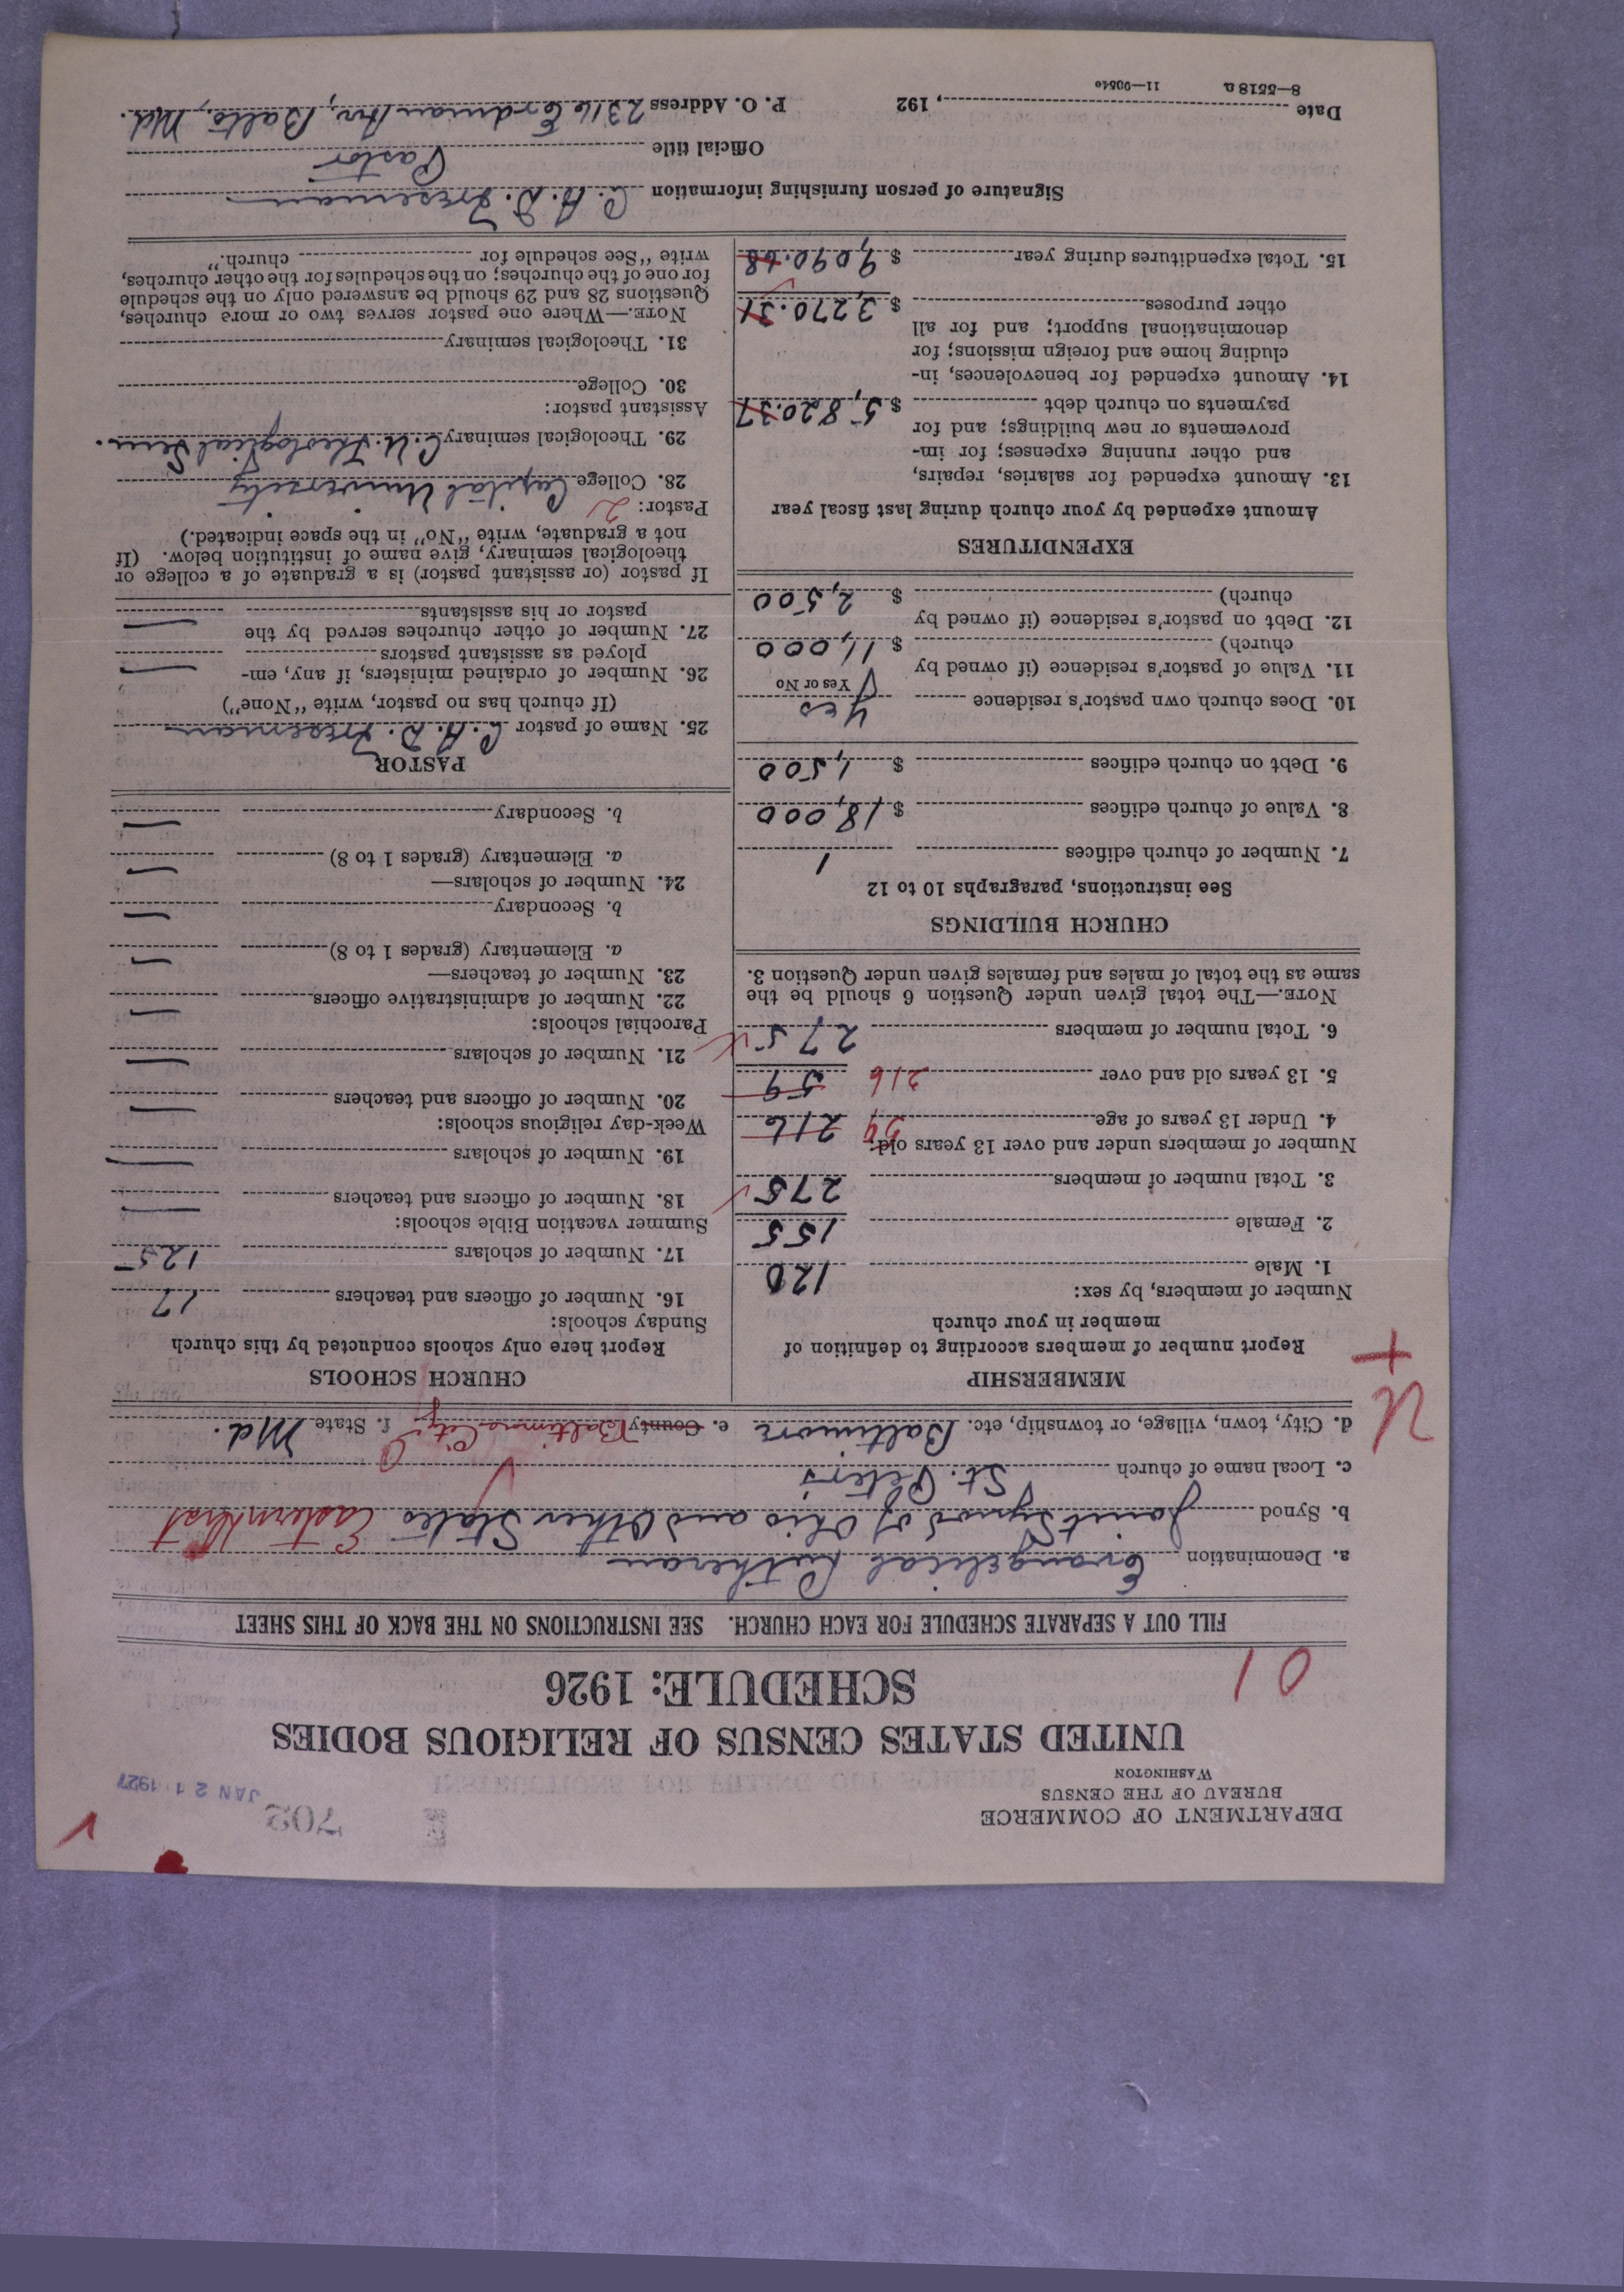 DEPARTMENT OF COMMERCE
BUREAU OF THE CENSUS
WASHINGTON
702
JAN 21 1927
UNITED STATES CENSUS OF RELIGIOUS BODIES
SCHEDULE: 1926
01
FILL OUT A SEPARATE SCHEDULE FOR EACH CHURCH. SEE INSTRUCTIONS ON THE BACK OF THIS SHEET
a. Denomination Evangelical Lutheran
b. Synod Joint Synod of Ohio and Other States Eastern Dist
c. Local name of church St. Peters
d. City, town, village, or township, etc. Baltimore e. County Baltimore City f. State Md.
U
+
MEMBERSHIP
Report number of members according to definition of
member in your church
Number of members, by sex:
1. Male 120
2. Female 155
3. Total number of members 275
Number of members under and over 13 years old:
4. Under 13 years of age 59 216
5. 13 years old and over 216 59
6. Total number of members 275
NOTE.—The total given under Question 6 should be the
same as the total of males and females given under Question 3.
CHURCH BUILDINGS
See instructions, paragraphs 10 to 12
7. Number of church edifices 1
8. Value of church edifices $ 18,000
9. Debt on church edifices $ 1,500
10. Does church own pastor's residence Yes
Yes or No
11. Value of pastor's residence (if owned by
church) $ 11,000
12. Debt on pastor's residence (if owned by
church) $ 2,500
EXPENDITURES
Amount expended by your church during last fiscal year
13. Amount expended for salaries, repairs,
and other running expenses; for im-
provements or new buildings; and for
payments on church debt $ 5,820.37
14. Amount expended for benevolences, in-
cluding home and foreign missions; for
denominational support; and for all
other purposes $ 3,270.31
15. Total expenditures during year $ 9,090.68
CHURCH SCHOOLS
Report here only schools conducted by this church
Sunday schools:
16. Number of officers and teachers 17
17. Number of scholars 125
Summer vacation Bible schools:
18. Number of officers and teachers —
19. Number of scholars —
Week-day religious schools:
20. Number of officers and teachers —
21. Number of scholars —
Parochial schools:
22. Number of administrative officers —
23. Number of teachers—
a. Elementary (grades 1 to 8) —
b. Secondary —
24. Number of scholars—
a. Elementary (grades 1 to 8) —
b. Secondary —
PASTOR
25. Name of pastor C. A. D. Fresemann
(If church has no pastor, write "None")
26. Number of ordained ministers, if any, em-
ployed as assistant pastors —
27. Number of other churches served by the
pastor or his assistants —
If pastor (or assistant pastor) is a graduate of a college or
theological seminary, give name of institution below. (If
not a graduate, write "No" in the space indicated.)
Pastor: 2
28. College Capital University
29. Theological seminary C. U. Theological Sem.
Assistant pastor:
30. College
31. Theological seminary
NOTE.—Where one pastor serves two or more churches,
Questions 28 and 29 should be answered only on the schedule
for one of the churches; on the schedules for the other churches,
write "See schedule for church."
Signature of person furnishing information C. A. D. Fresemann
Official title Pastor
Date , 192 P. O. Address 2316 Erdman Av., Balto., Md.
8—5518 a 11—9054e